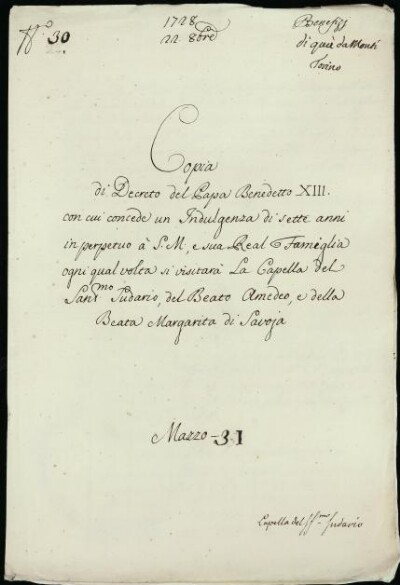 N.° 30
1728
22 8bre
Benefizj
di quà da Monti
Torino
Copia
di Decreto del Papa Benedetto XIII.
con cui concede un Indulgenza di sette anni
in perpetuo à S. M., e sua Real Famiglia
ogni qual volta si visitarà La Capella del
Sant.mo Sudario, del Beato Amedeo, e della
Beata Margarita di Savoja
Mazzo - 31
Capella del SS.mo Sudario